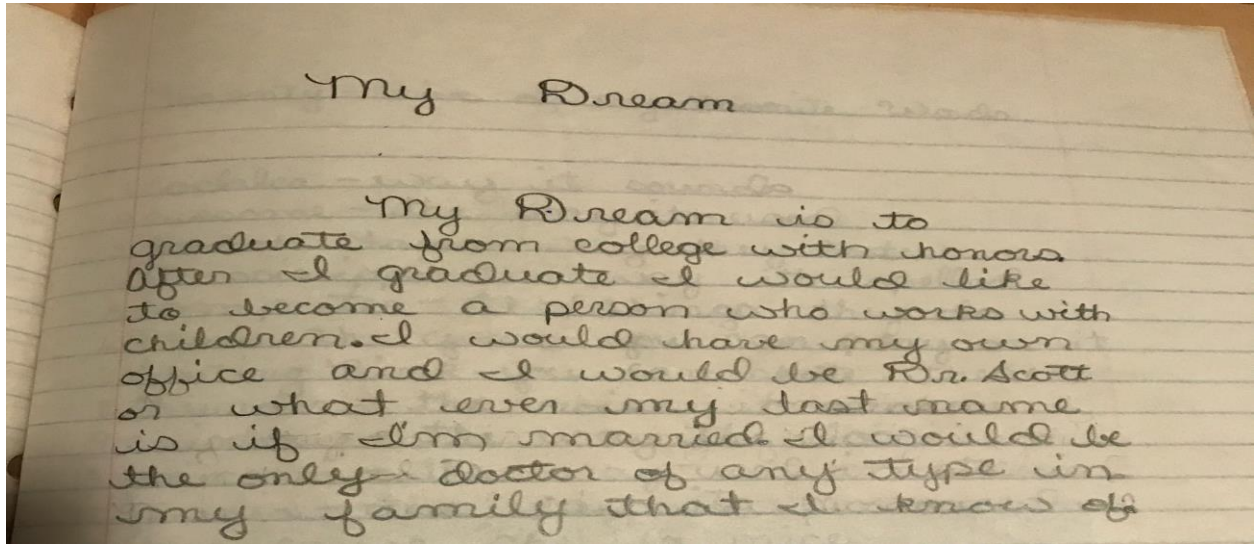 My Dream
My Dream is to
graduate from college with honors.
After I graduate I would like
to become a person who works with
children. I would have my own
office and I would be Dr. Scott
or what ever my last name
is if I'm married. I would be
the only doctor of any type in
my family that I know of.